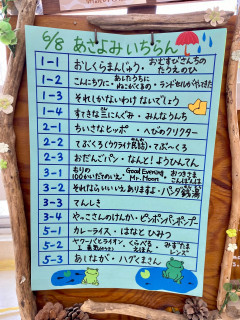 6/8 あさよみ いちらん
1-1 おしくらまんじゅう・おむすびさんちのたうえのひ
1-2 こんにちワニ・あいたうちにねこがくるの・ランドセルがやってきた
1-3 それしかないわけ ないでしょう
1-4 すてきな三にんぐみ・みんなうんち
2-1 ちいさなヒッポ・へびのクリクター
2-2 てぶくろ(ウクライナ民話)・てぶ〜くろ
2-3 おだんごパン・なんと!ようひんてん
3-1 もりの100かいだてのいえ・Good Evening, Mr. Moon・おつきさまこんばんは
3-2 それならいい いえありますよ・パンダ銭湯
3-3 てんしき
3-4 やっこさんのけんか・ピンポンパンポンプー
5-1 カレーライス・はなとひみつ
5-2 やクーバとライオン 1 勇気・くらべるえほん・みずたまレンズ
5-3 あしなが・ハグくまさん